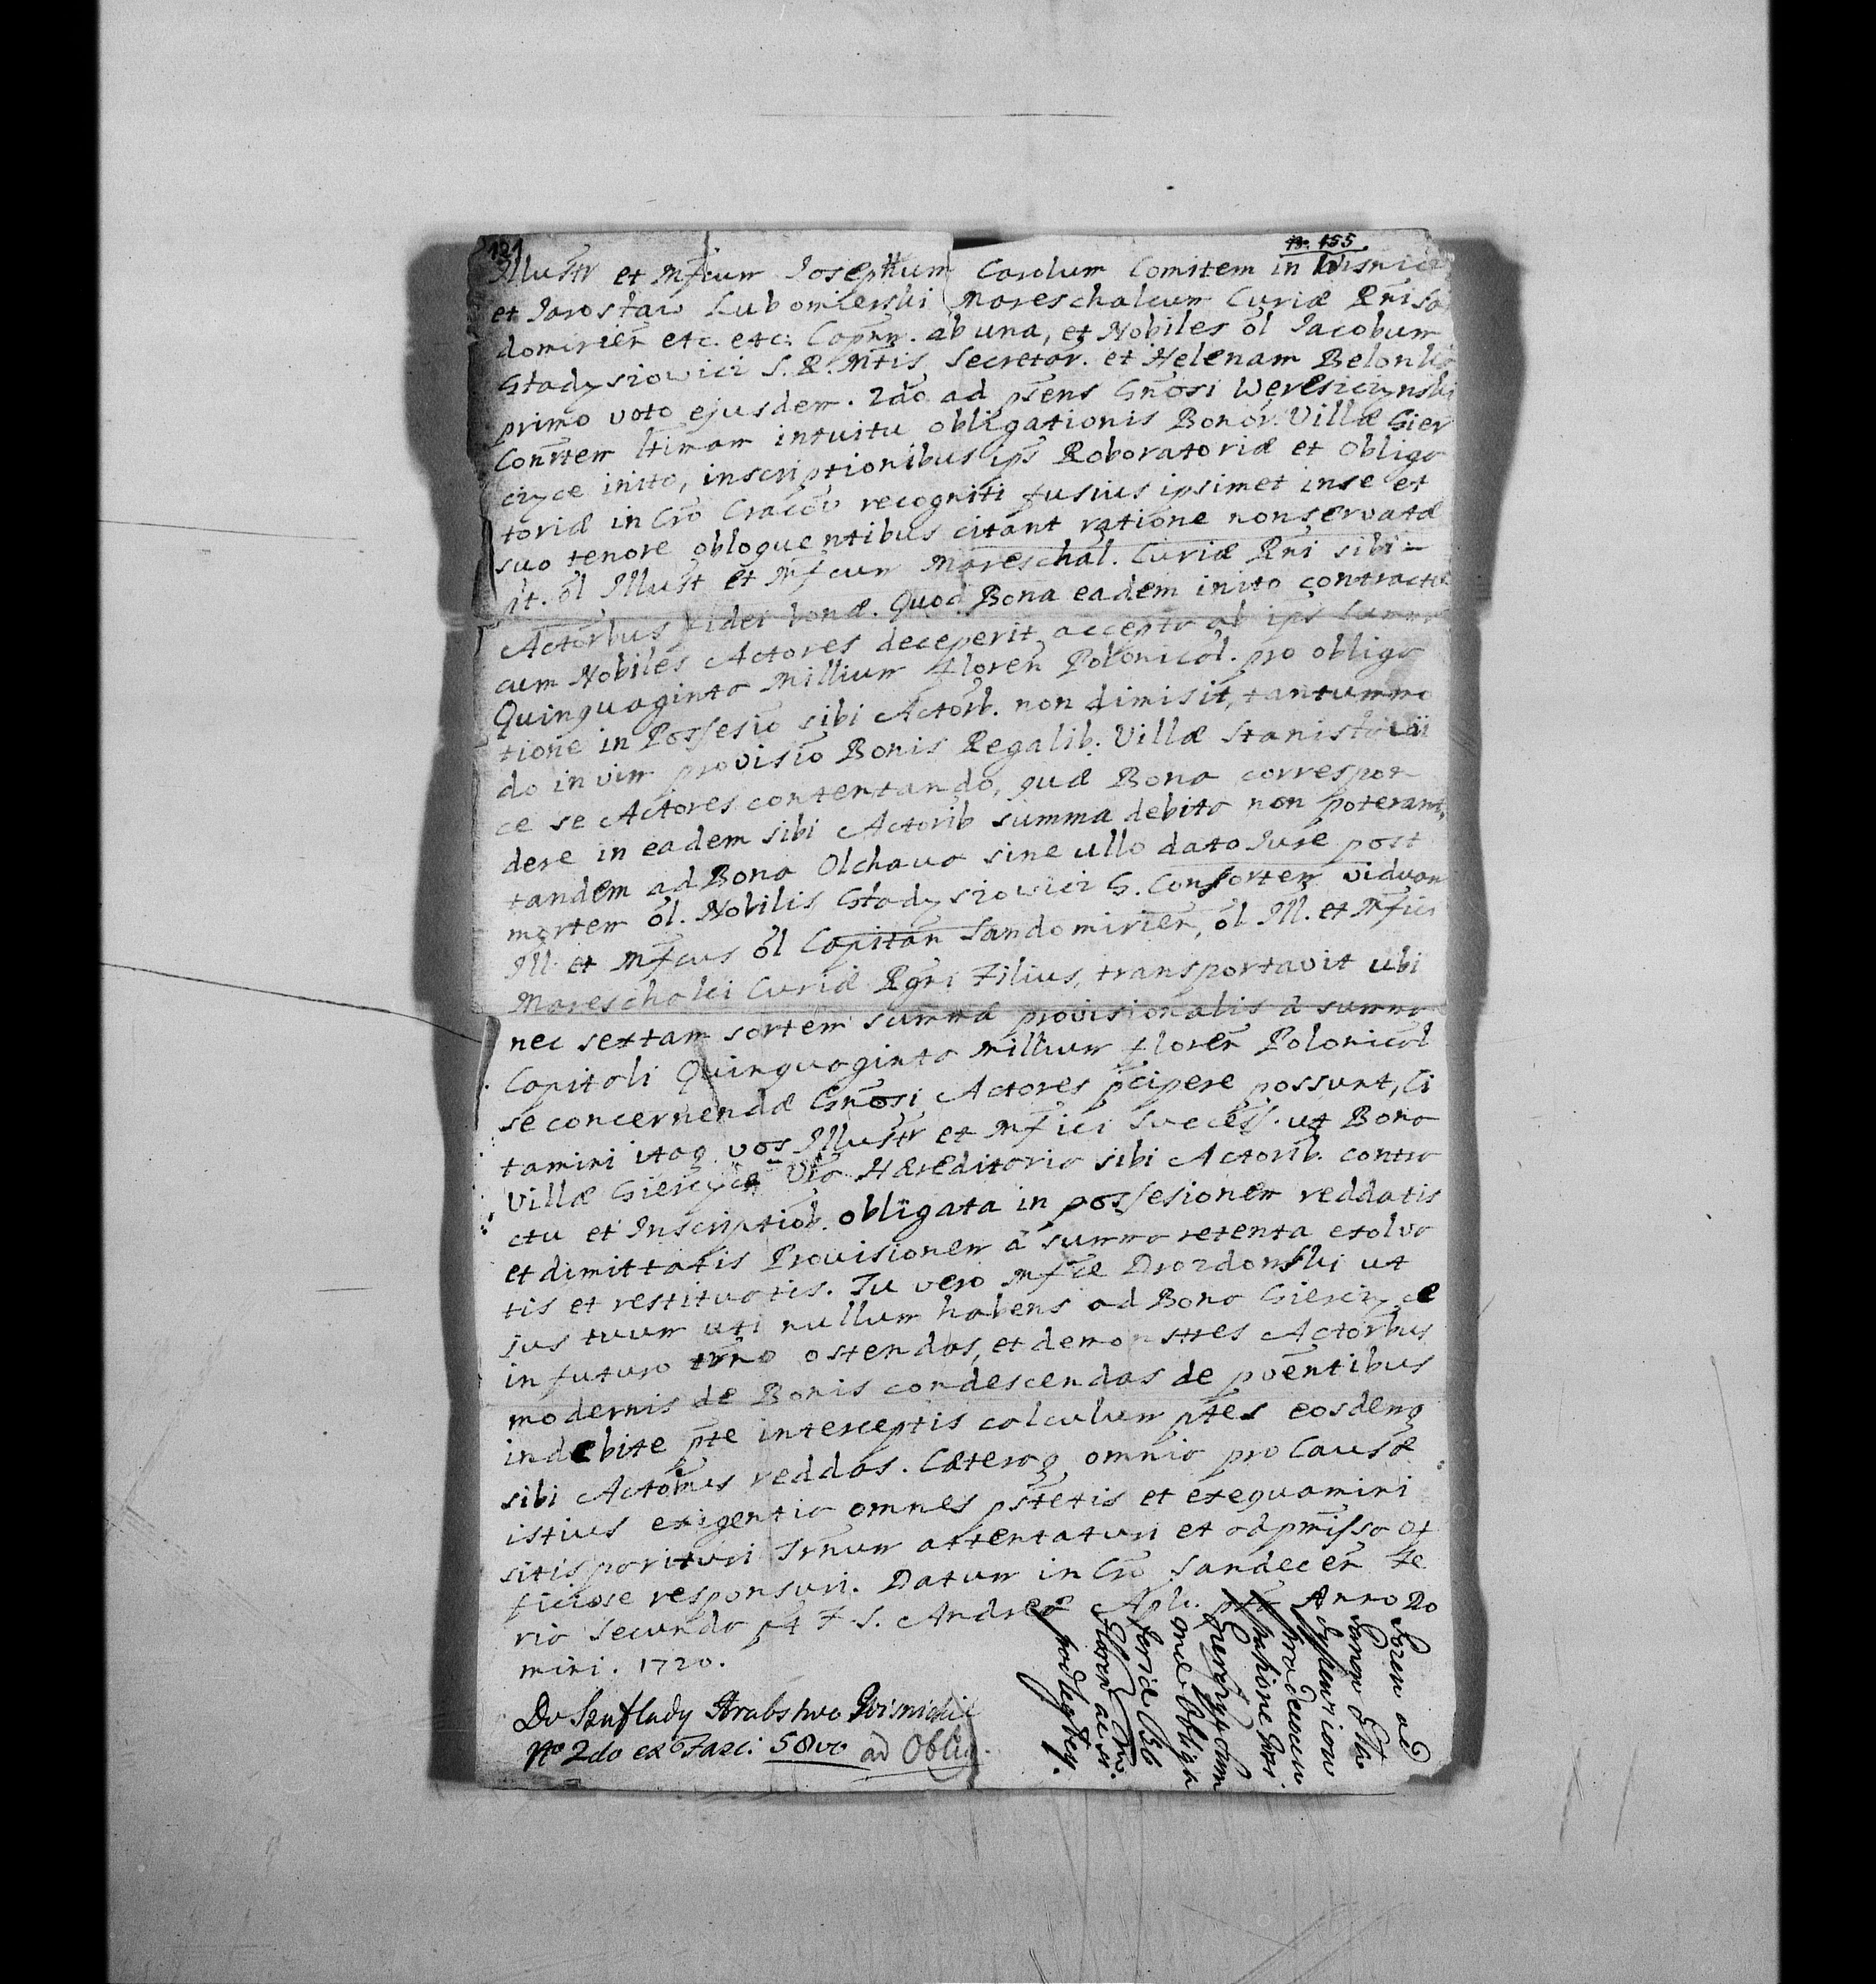 121
N. 155
Illustr et Mfcum Josephum Carolum Comitem in Wisnicz
et Jarostaw Lubomierski Mareschalcum Curiæ Rni San
domirien etc. etc. Capnn. ab una, et Nobiles ol Jacobum
Gładysiowici S. R. Mtis Secretar. et Helenam Belonka
primo voto ejusdem. 2do ad psens Gnosi Weresiczynski
Conrtem ltimam intuitu obligationis Bonor. Villæ Gier
czyce inito, inscriptionibus ips Roboratoriæ et Obliga
toriæ in Cro Cracov recogniti fusius ipsimet in se et
suo tenore obloquentibus citant ratione non servatæ
pt. ol Illust et Mfcum Mareschal. Curiæ Rni sibi
Actorbus fidei bonæ. Quod Bona eadem inito contractu
cum Nobiles Actores deceperit accepta ab ips summa
Quinquaginta Millium floren Polonical. pro obliga
tione in Possesio sibi Actorb. non dimisit, tantummo
do in vim provisio Bonis Regalib. Villæ Stanistawi
ce se Actores contentando, quæ Bona correspon
dere in eadem sibi Actorib summa debita non poterant,
tandem ad Bona Olchava sine ullo dato Jure post
mortem ol. Nobilis Gładysiowici G. Consortem viduam
Ill. et Mfcus ol Capitan Sandomirien, ol Ill. et Mfici
Mareschalci Curiæ Rgni Filius, transportavit ubi
nec sextam sortem summæ provisionalis à summa
Capitali Quinquaginta Millium floren Polonical
se concernendæ Gnosi Actores pcipere possunt, Ci
tamini itaq vos Illustr et Mfici Success. ut Bona
Villæ Gierczyce Vra Hæreditaria sibi Actorib. contra
ctu et Inscriptiob. obligata in possesionem reddatis
et dimittatis Provisionem à summa retenta exolva
tis et restituatis. Tu vero Mfce Drozdonski ut
jus tuum uti nullum habens ad Bona Gierczyce
in futuro trno ostendas, et demonstres Actorbus
modernis de Bonis condescendas de pventibus
indebite pte interceptis calculum ptes eosdemq
sibi Actorbus reddas. Cæteraq omnia pro Causæ
istius exigentia omnes pstetis et exequamini
sitis parituri Trnum attentaturi et ad pmissa of
ficiose responsuri. Datum in Cro Sandecen Fe
ria Secunda pt F. S. Andreæ Apli. Anno Do
mini. 1720.
Do Szuflady Hrabstwa Wisnickie
No 2do ex Fasci. 58vo ad Oblig.